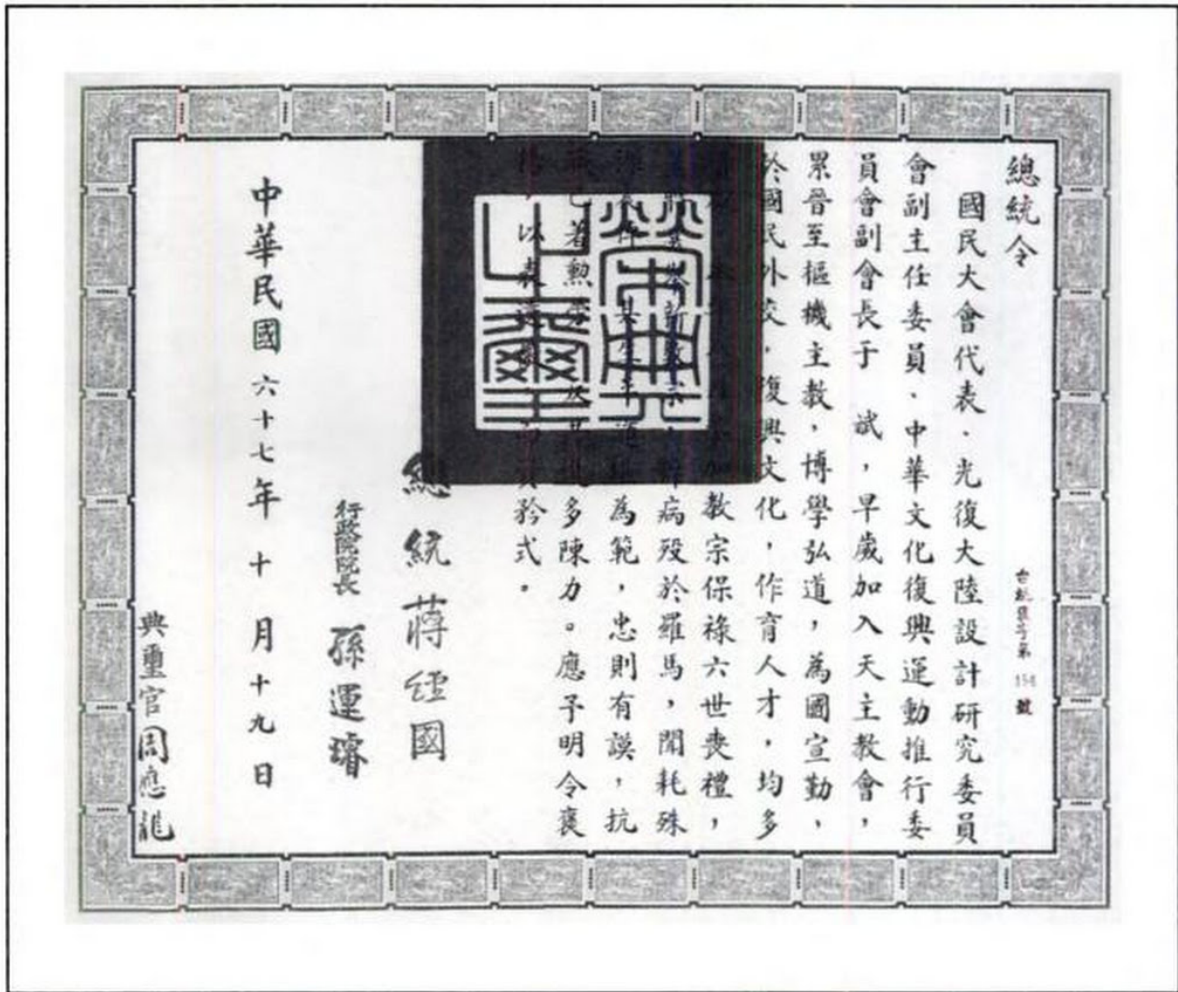 總統令
號
國民大會代表、光復大陸設計研究委員
會副主任委員、中華文化復興運動推行委
員會副會長于斌,早歲加入天主教會,
累晉至樞機主教,博學弘道,為國宣勤,
於國民外交,復興文化,作育人才,均多
加教宗保祿六世喪禮,
病歿於羅馬,聞耗殊
其生平為範,忠則有謨,抗
已著勳勞多陳力。應予明令褒
以表資矜式。
榮典之璽
總統蔣經國
行政院院長 孫運璿
中華民國六十七年十月十九日
典璽官周應龍